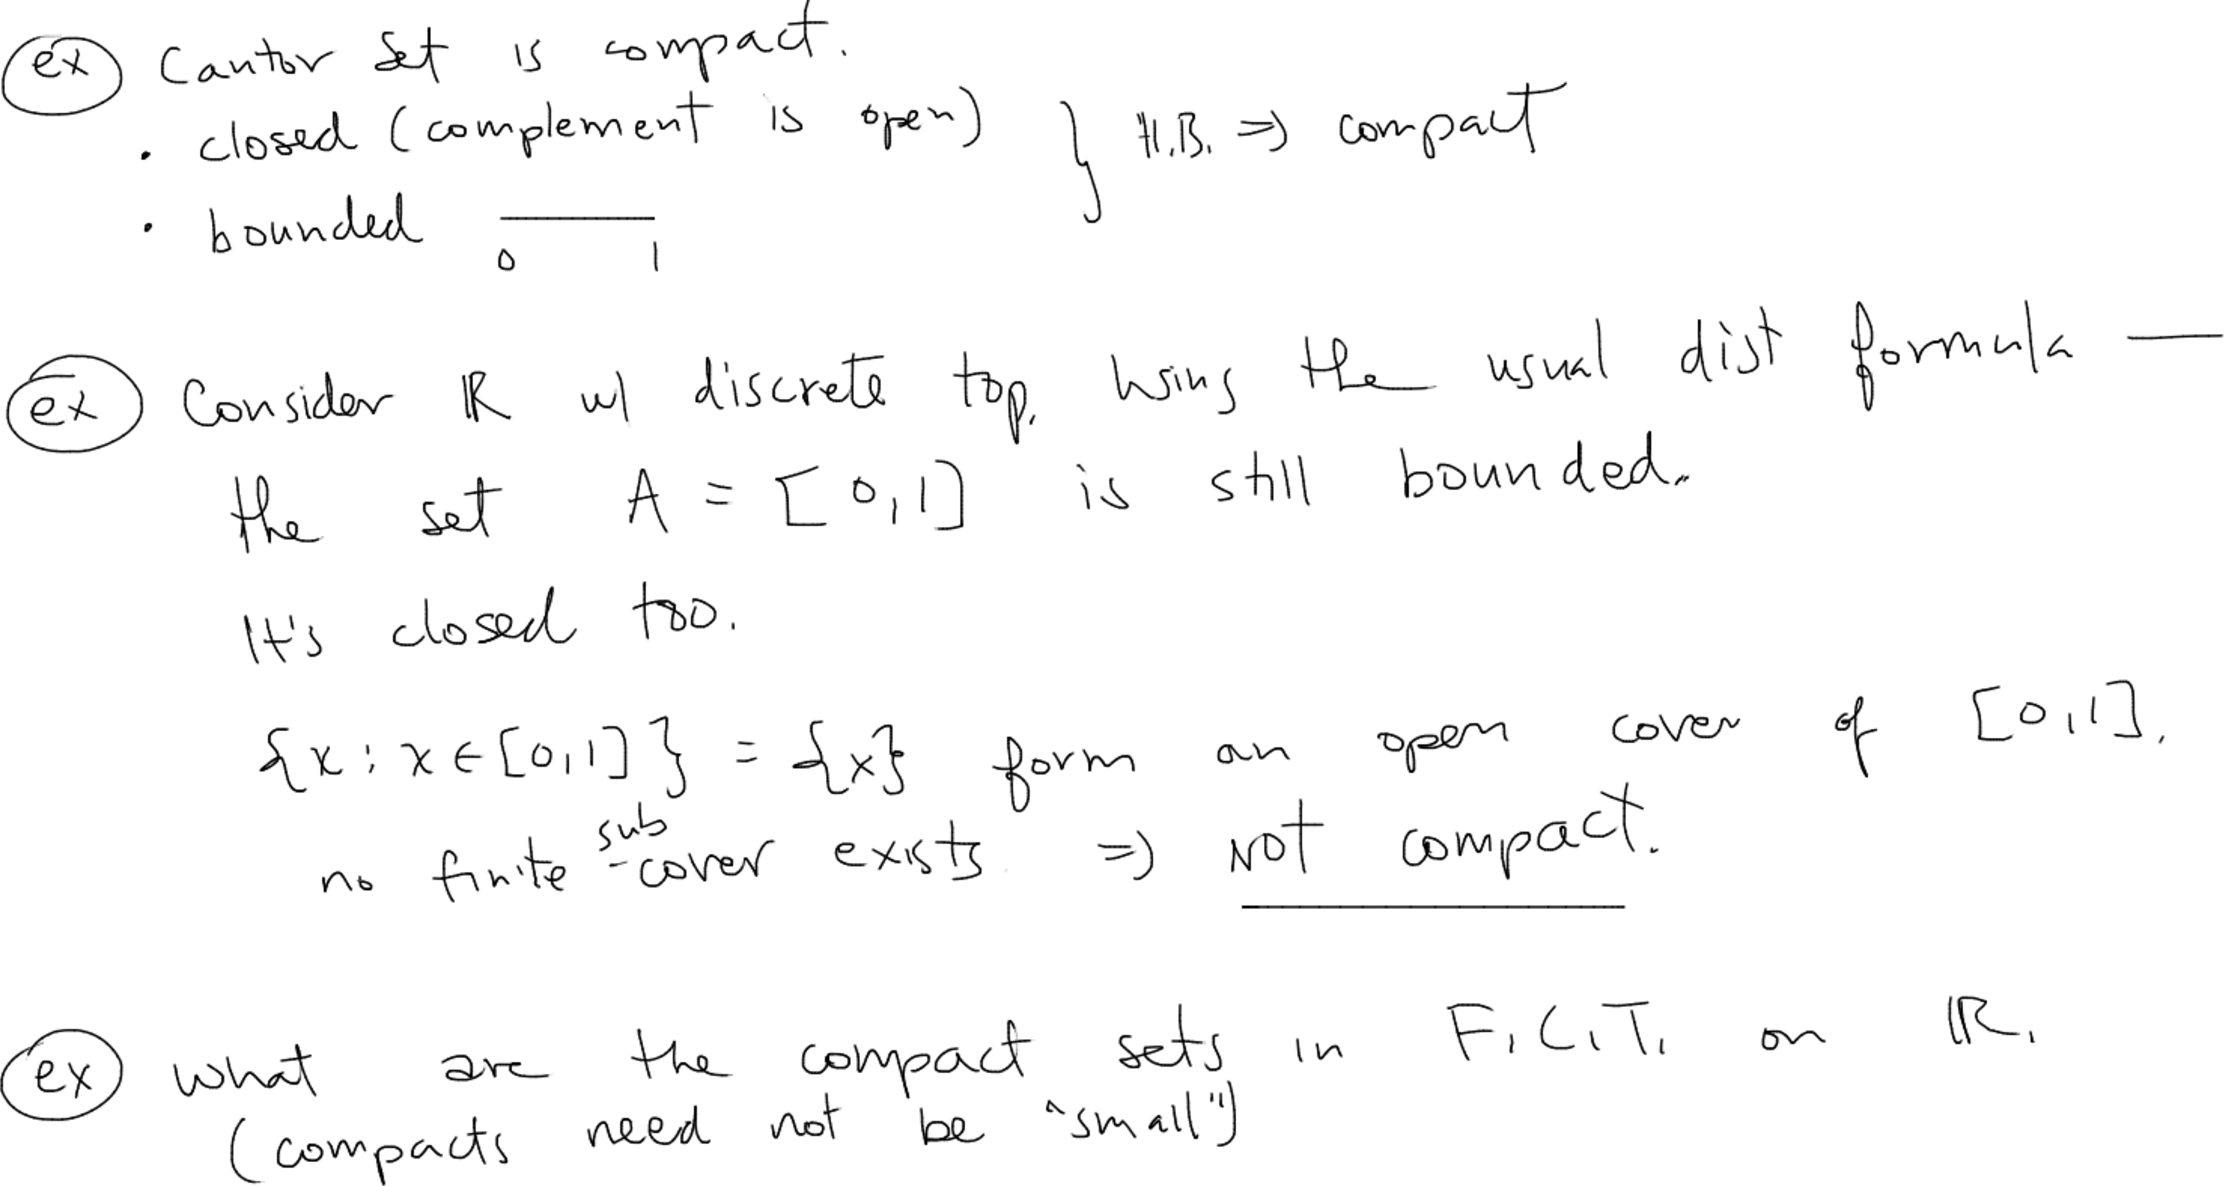 ex Cantor Set is compact.
• closed (complement is open) } H.B. ⇒ compact
• bounded
0 1
ex Consider ℝ w/ discrete top. Using the usual dist formula —
the set A = [0,1] is still bounded.
It's closed too.
{x : x ∈ [0,1]} = {x} form an open cover of [0,1].
no finite sub-cover exists. ⇒ NOT compact.
ex What are the compact sets in F.C.T. on ℝ.
(compacts need not be "small")